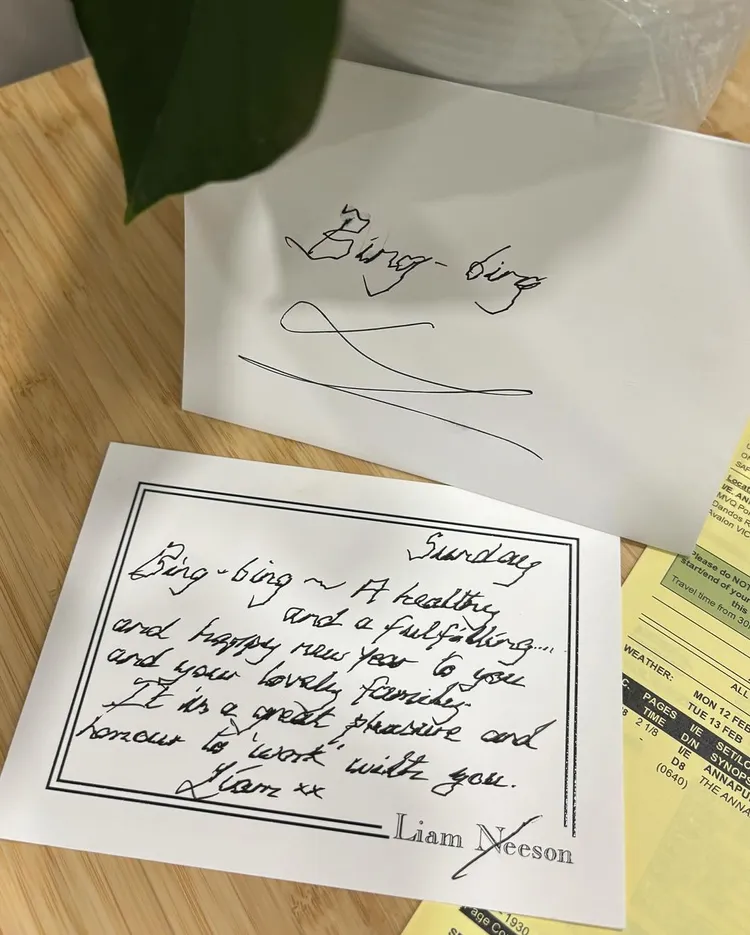 Bing-bing
Sunday
Bing-bing ~ A healthy
and a fulfilling....
and happy new year to you
and your lovely family.
It is a great pleasure and
honour to 'work' with you.
Liam xx
Liam Neeson
Locat
I/E. AN
MVQ Po
Dandos R
Avalon VIC
Please do NO
start/end of your
this
Travel time from 30
ALL
WEATHER:
MON 12 FEB
TUE 13 FEB
PAGES I/E SET/LO
TIME D/N SYNOP
2 1/8 I/E ANNAPU
- D8 THE ANNA
(0640)
1930
age Co